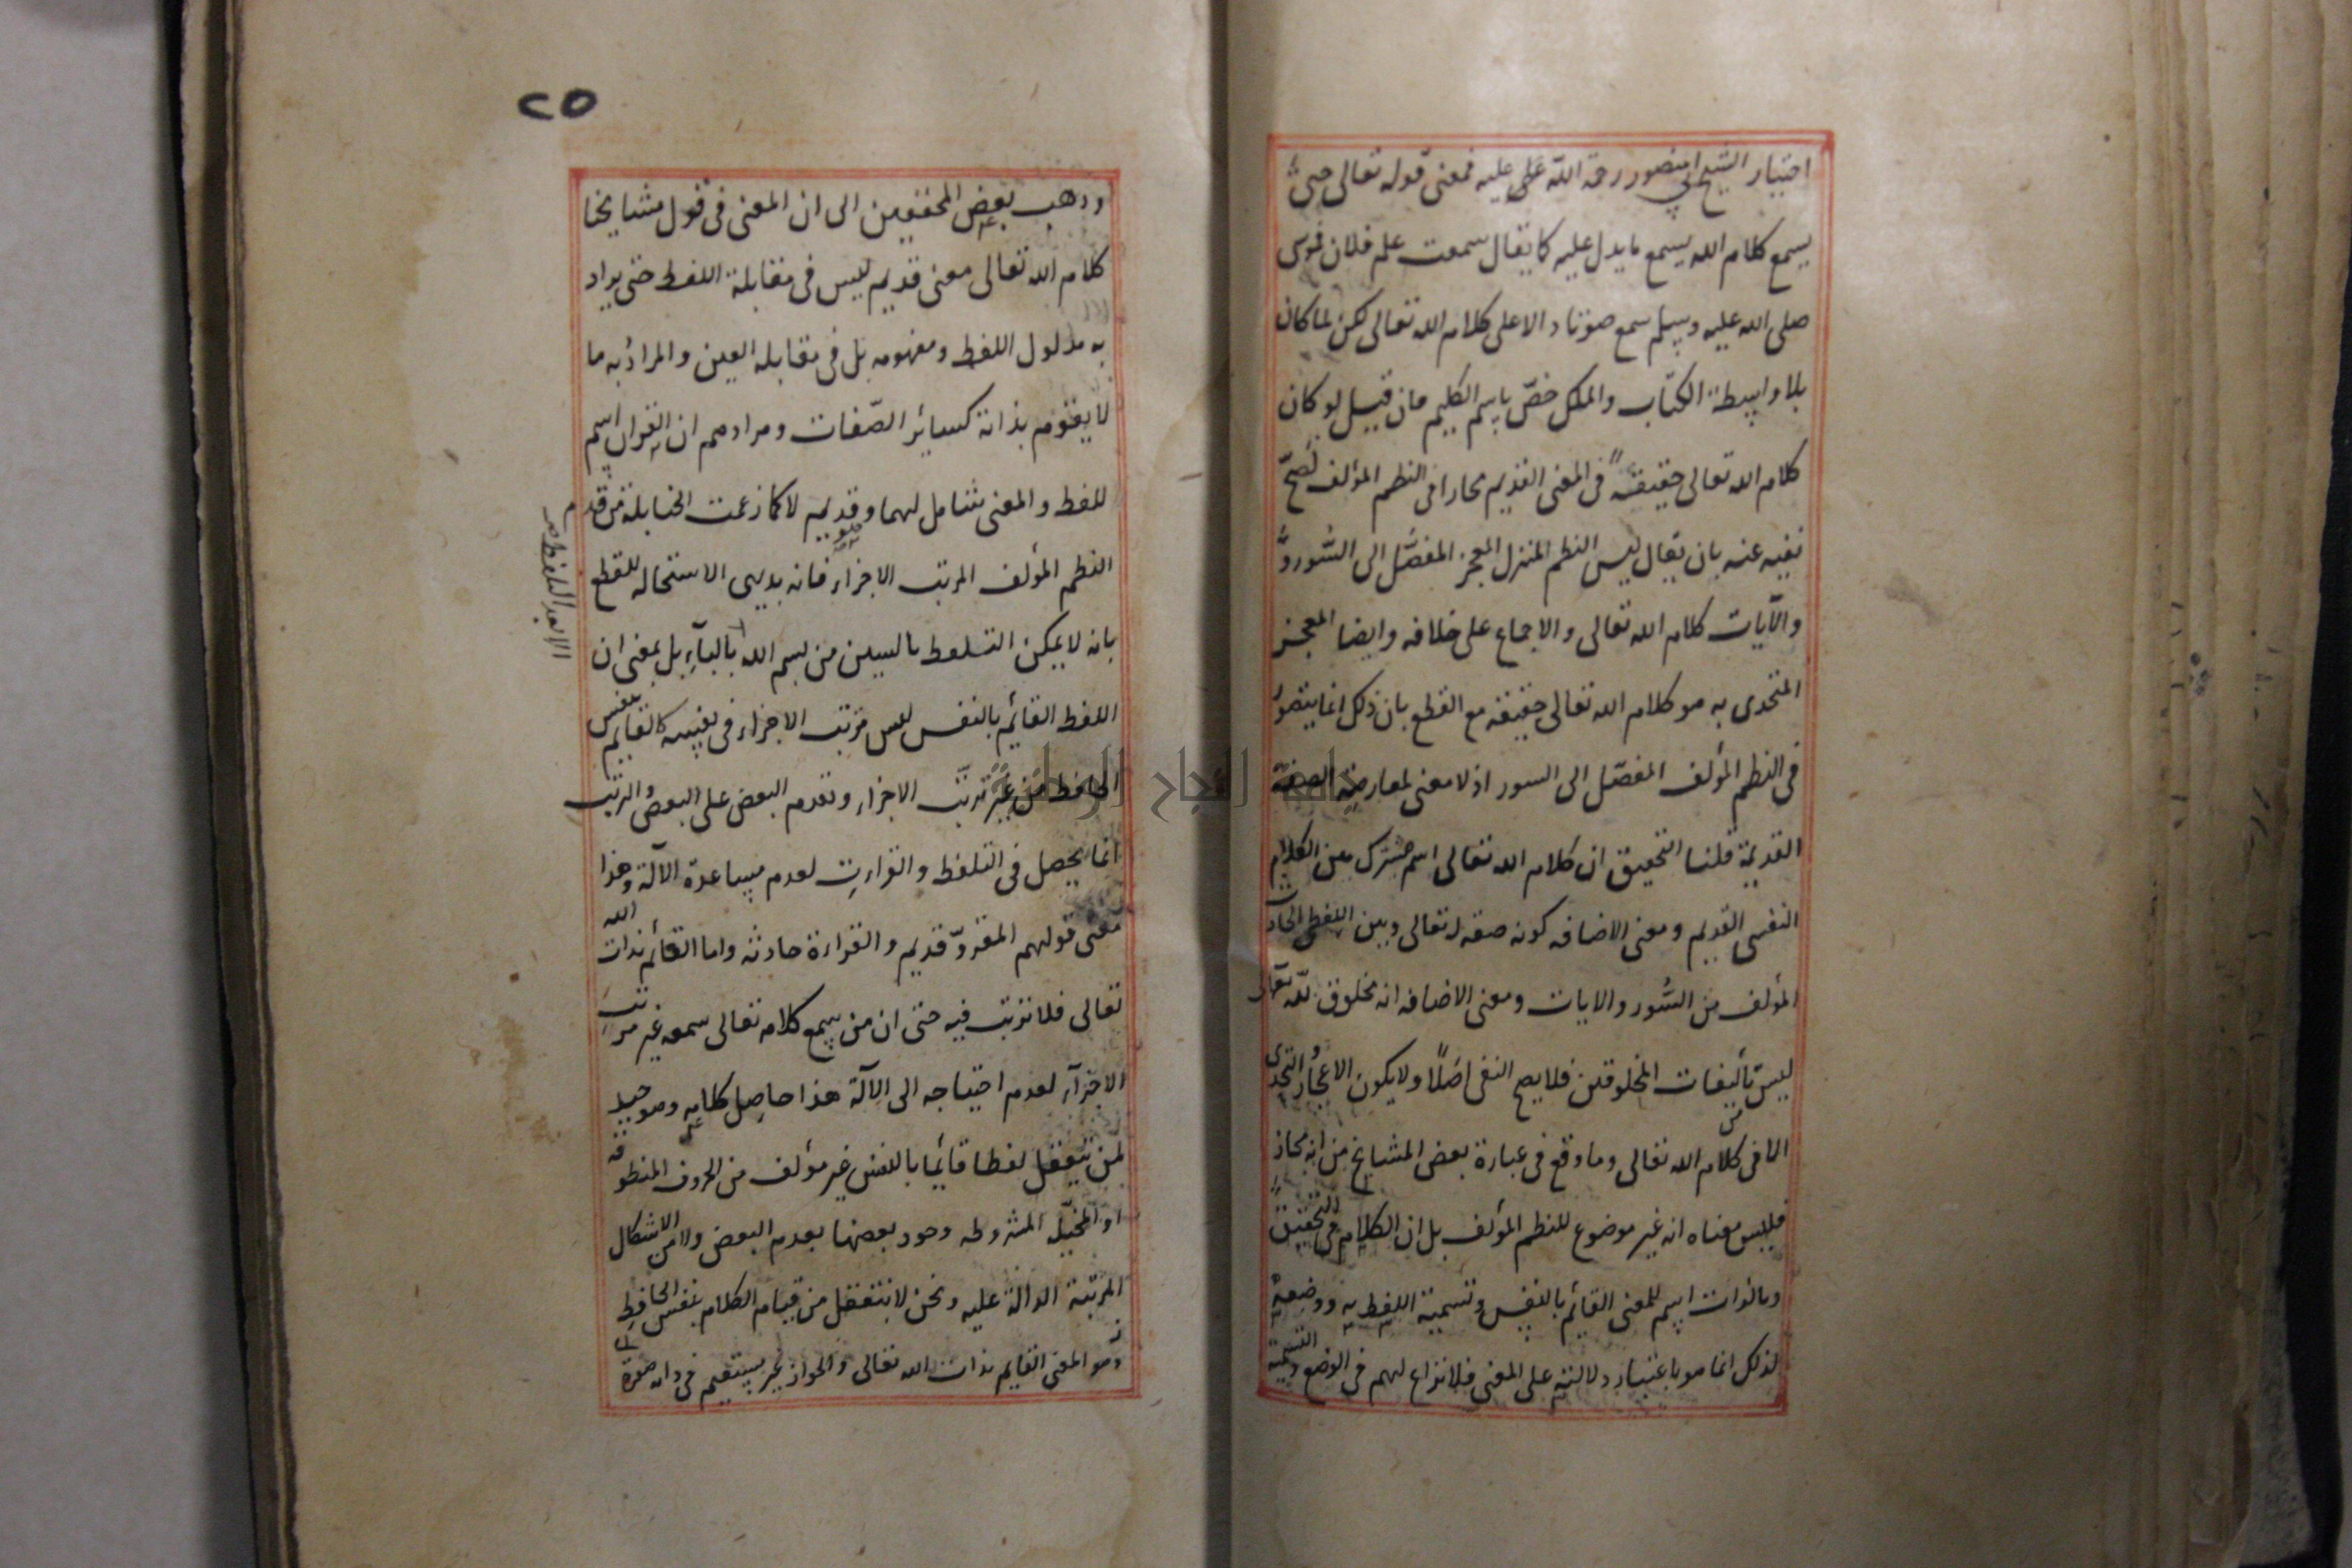 اختيار الشيخ ابى منصور رحمة الله تعالى عليه فمعنى قوله تعالى حتى
يسمع كلام الله يسمع ما يدل عليه كما يقال سمعت علم فلان فموسى
صلى الله عليه وسلم سمع صوتا دالا على كلام الله تعالى لكن لما كان
بلا واسطة الكتاب والملك خصّ باسم الكليم فان قيل لو كان
كلام الله تعالى حقيقةً فى المعنى القديم مجازا فى النظم المؤلف لصحّ
نفيه عنه بان يقال ليس النظم المنزل المعجز المفصّل الى السّور
والآيات كلام الله تعالى والاجماع على خلافه وايضا المعجز
المتحدى به هو كلام الله تعالى حقيقة مع القطع بان ذلك انما يتصور
فى النظم المؤلف المفصّل الى السور اذ لا معنى لمعارضة الصفة
القديمة قلنا التحقيق ان كلام الله تعالى اسم مشترك بين الكلام
النفسى القديم ومعنى الاضافه كونه صفة له تعالى وبين اللفظى الحادث
المؤلف من السّور والايات ومعنى الاضافه انه مخلوق لله تعالى
ليس من تأليفات المخلوقين فلا يصح النفى اصلًا ولا يكون الاعجاز والتحدى
الا فى كلام الله تعالى وما وقع فى عبارة بعض المشايخ من انه مجاز
فليس معناه انه غير موضوع للنظم المؤلف بل ان الكلام فى التحقيق
وبالذات اسم للمعنى القائم بالنفس وتسمية اللفظ به ووضعه
لذلك انما هو باعتبار دلالته على المعنى فلا نزاع لهم فى الوضع والتسمية
٢٥
وذهب بعض المحققين الى ان المعنى فى قول مشايخنا
كلام الله تعالى معنى قديم ليس فى مقابلة اللفظ حتى يراد
به مدلول اللفظ ومفهومه بل فى مقابله العين والمراد به ما
لا يقوم بذاته كسائر الصّفات ومرادهم ان القران اسم
للفظ والمعنى شامل لهما وهو قديم لا كما زعمت الحنابلة من قدم
النظم المؤلف المرتب الاجزاء فانه بديهى الاستحاله للقطع
بانه لا يمكن التلفظ بالسين من بسم الله بالباء بل بمعنى ان
الا بعد التلفظ صح
اللفظ القائم بالنفس ليس مرتب الاجزاء فى نفسه كالقايم بنفس
الحافظ من غير ترتّب الاجزاء وتقدم البعض على البعض والترتب
انما يحصل فى التلفظ والقراءت لعدم مساعدة الآلة وهذا
معنى قولهم المقروّ قديم والقراءة حادثه واما القائم بذات الله
تعالى فلا ترتب فيه حتى ان من سمع كلامه تعالى سمعه غير مرتب
الاجزآء لعدم احتياجه الى الآلة هذا حاصل كلامه وهو جيد
لمن يتعقل لفظا قائما بالنفس غير مؤلف من الحروف المنطوقه
او المخيّله المشروطه وجود بعضها بعدم البعض ولا من الاشكال
المرتبة الدالة عليه ونحن لا نتعقل من قيام الكلام بنفس الحافظ
وهو المعنى القايم بذات الله تعالى